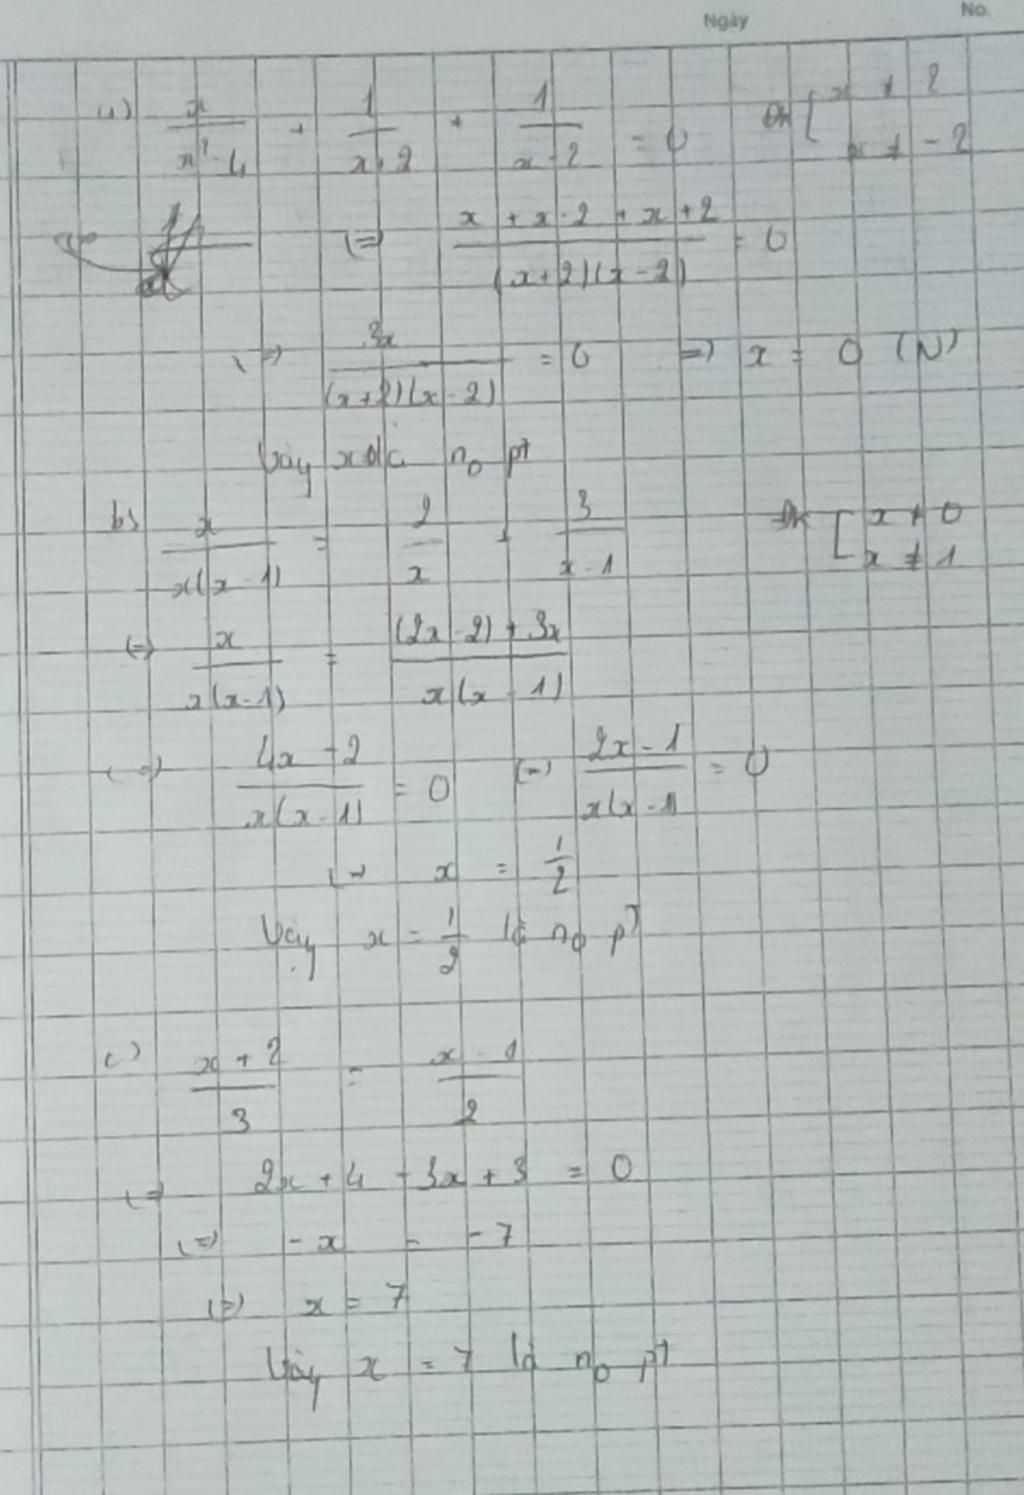 Ngày No.
a) x/(x² - 4) + 1/(x + 2) + 1/(x - 2) = 0 Đk [ x ≠ 2
x ≠ - 2
(=) (x + x - 2 + x + 2)/((x+2)(x-2)) = 0
(=) 3x/((x+2)(x-2)) = 0 =) x = 0 (N)
Vậy x=0 là n₀ pt
b) x/(x(x-1)) = 2/x + 3/(x-1) Đk [ x ≠ 0
x ≠ 1
(=) x/(x(x-1)) = ((2x-2) + 3x)/(x(x-1))
(=) (4x - 2)/(x(x-1)) = 0 (=) (2x-1)/(x(x-1)) = 0
(=) x = 1/2
Vậy x = 1/2 là n₀ pt
c) (x+2)/3 = (x-1)/2
(=) 2x + 4 - 3x + 3 = 0
(=) -x = -7
(=) x = 7
Vậy x = 7 là n₀ pt